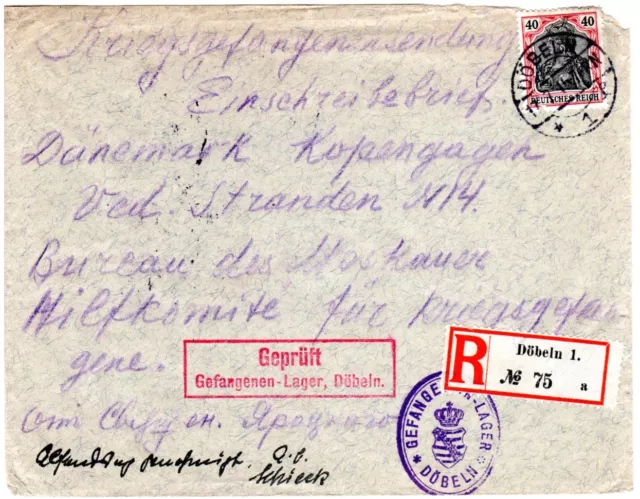 Kriegsgefangenensendung
40 40
DÖBELN
DEUTSCHES REICH
* 1
Einschreibebrief.
Dänemark Kopengagen
Ved. Stranden N14.
Bureau des Moskauer
Hilfkomite für Kriegsgefan-
gene.
Geprüft
Gefangenen-Lager, Döbeln.
R
Döbeln 1.
№ 75 a
От Священ.
* GEFANGENEN-LAGER *
DÖBELN
Absendung genehmigt.
Schieck